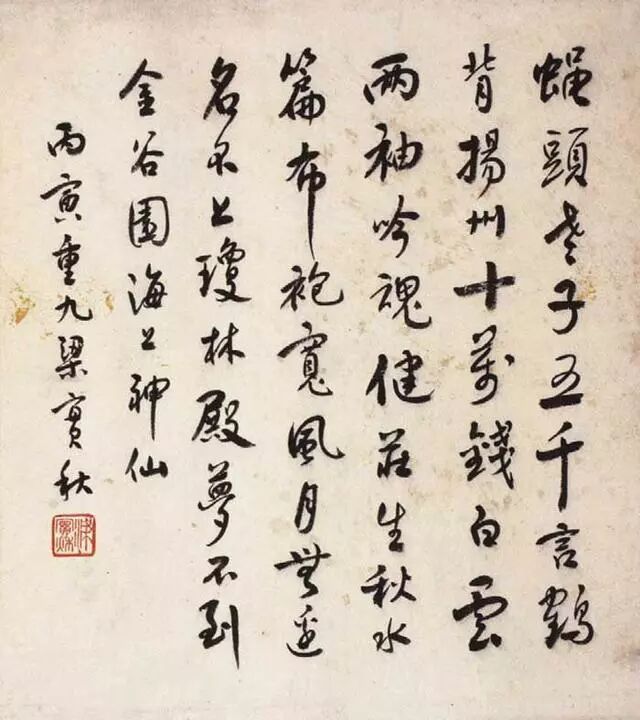 蠅頭老子五千言鶴
背揚州十萬錢白雲
兩袖吟魂健莊生秋水
篇布袍寬風月無邊
名不上瓊林殿夢不到
金谷園海上神仙
丙寅重九梁實秋